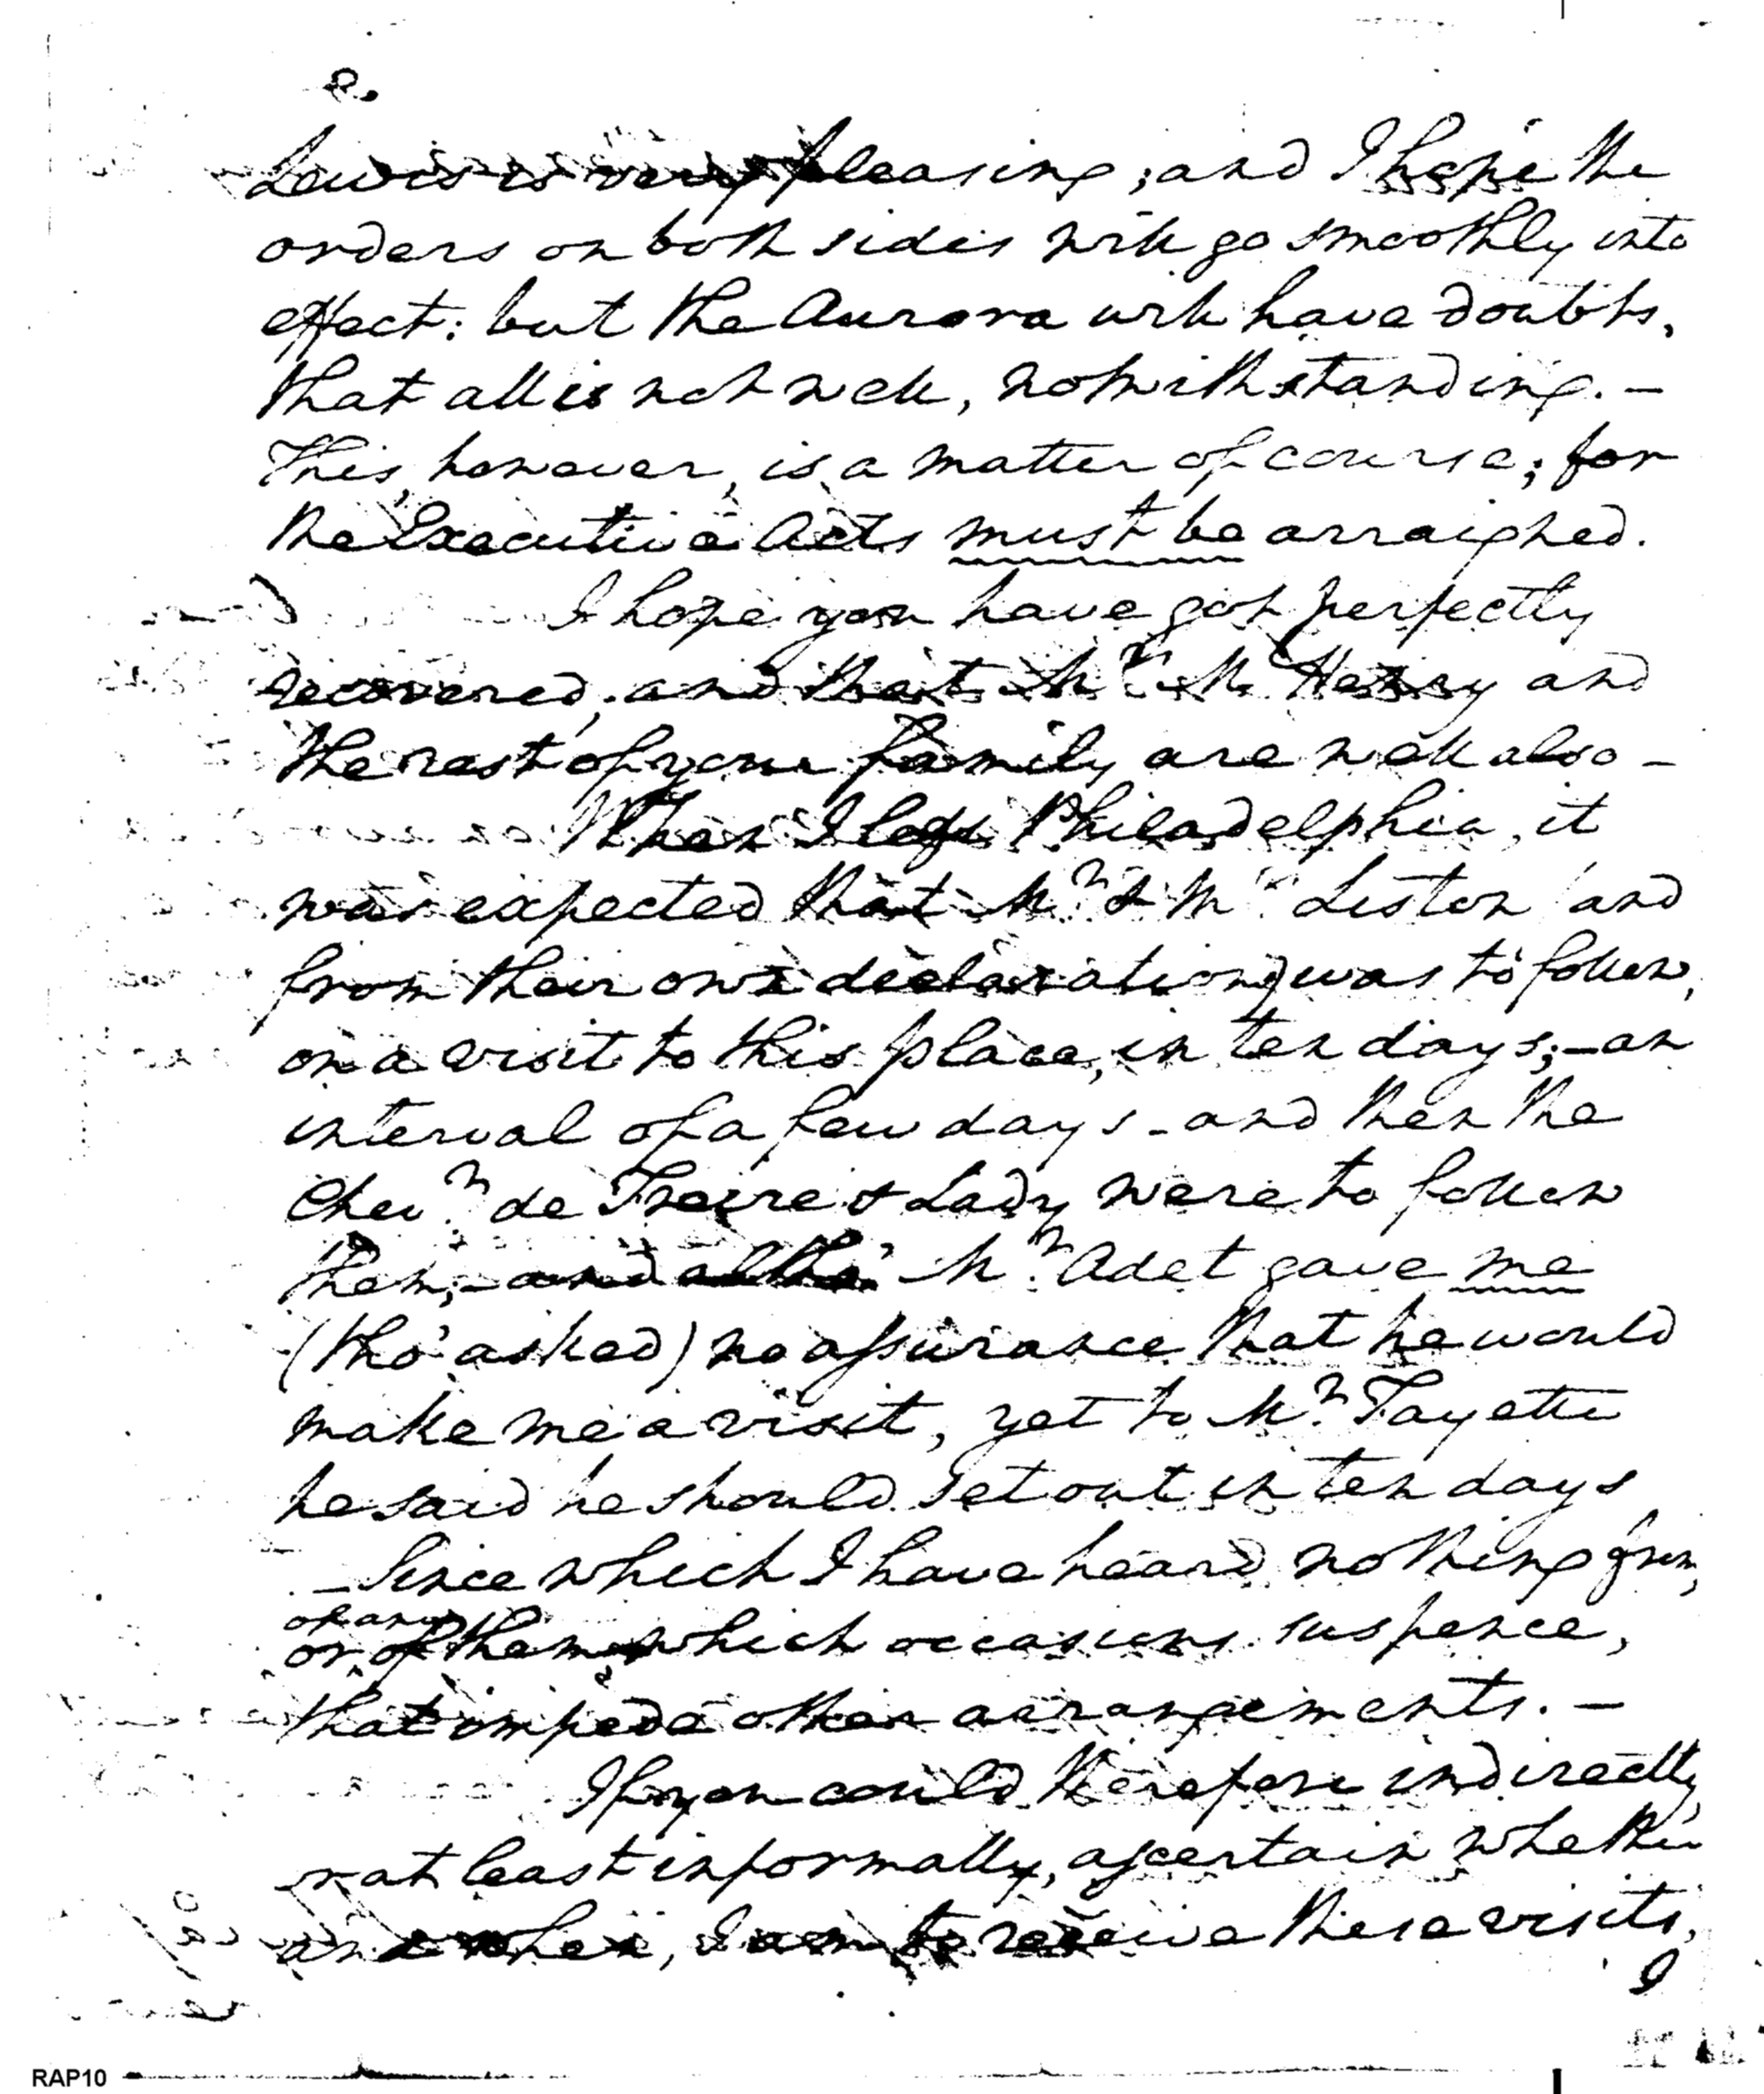 2.
Lewis is very pleasing; and I hope the
orders on both sides will go smoothly into
effect: but the Aurora will have doubts,
that all is not well, notwithstanding. —
This, however, is a matter of course; for
the Executive Acts must be arraigned.
I hope you have got perfectly
recovered, and that Mrs. McHenry and
the rest of your family are well also —
When I left Philadelphia, it
was expected that Mr. & Mrs. Liston (and
from their own declaration) was to follow,
on a visit to this place, in ten days; — an
interval of a few days — and then the
Chevr. de Freire & Lady were to follow
them; — and altho' Mr. Adet gave me
(tho' asked) no assurance that he would
make me a visit, yet to Mr. Fayette
he said he should set out in ten days
— Since which I have heard nothing from,
or of any of them, which occasions suspence,
that impede other arrangements. —
If you could therefore indirectly,
or at least informally, ascertain whether
and when, I am to receive these visits,
I
RAP10